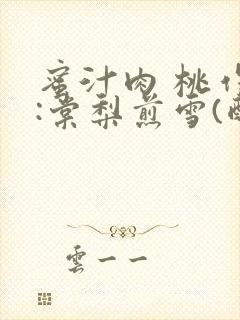 蜜汁肉桃作
:棠梨煎雪(
雲一一